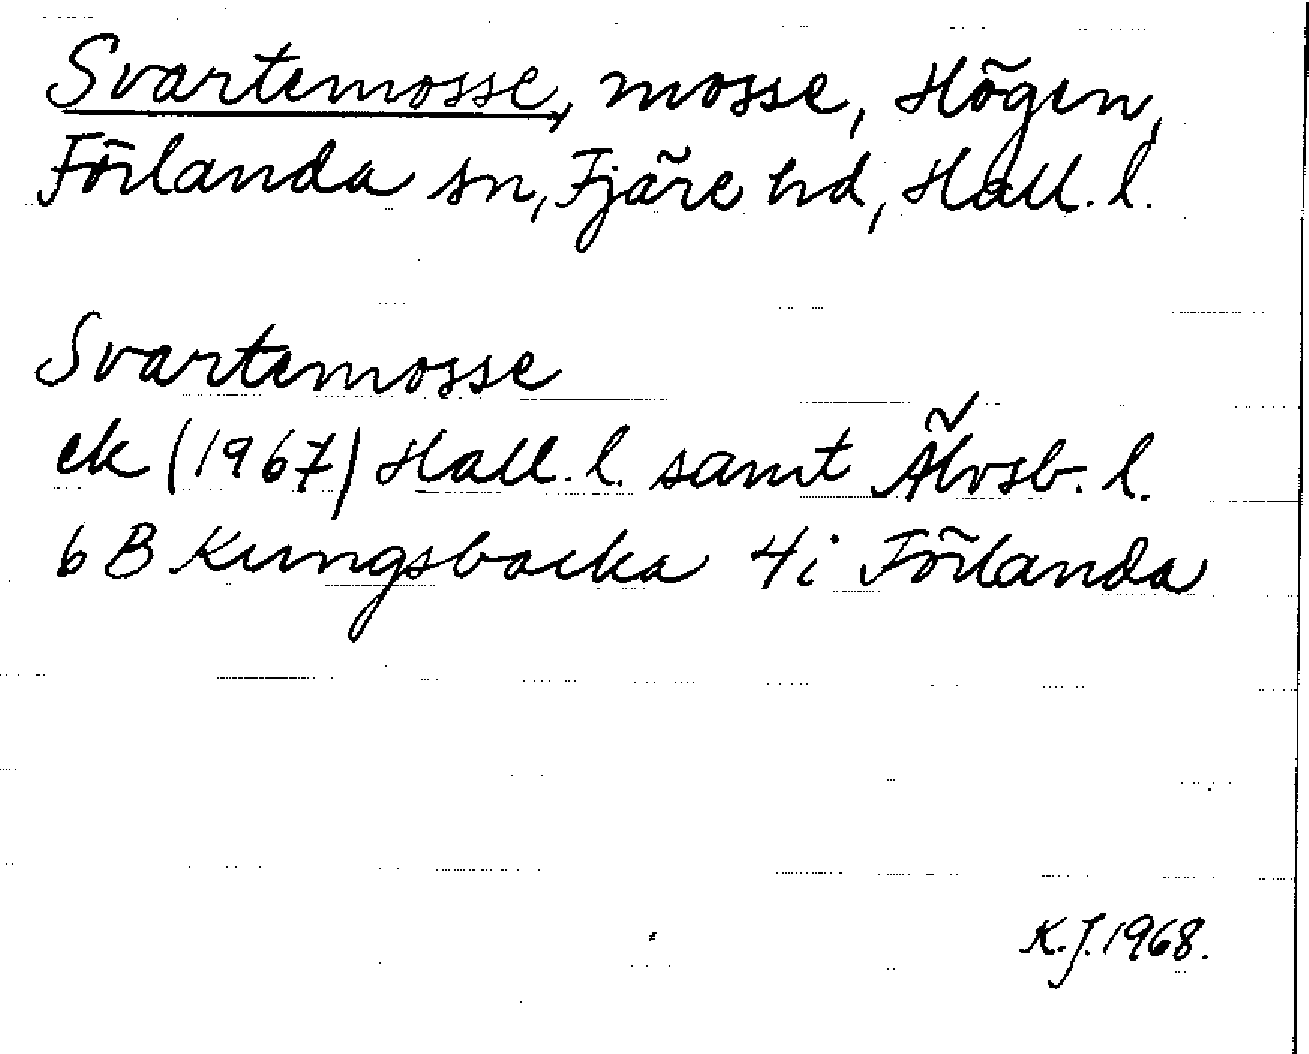 Svartemosse, mosse, Högen,
Förlanda sn, Fjäre hd, Hall. l.
Svartemosse
ek (1967) Hall. l. samt Älvsb. l.
6 B Kungsbacka 4i Förlanda
K.J. 1968.